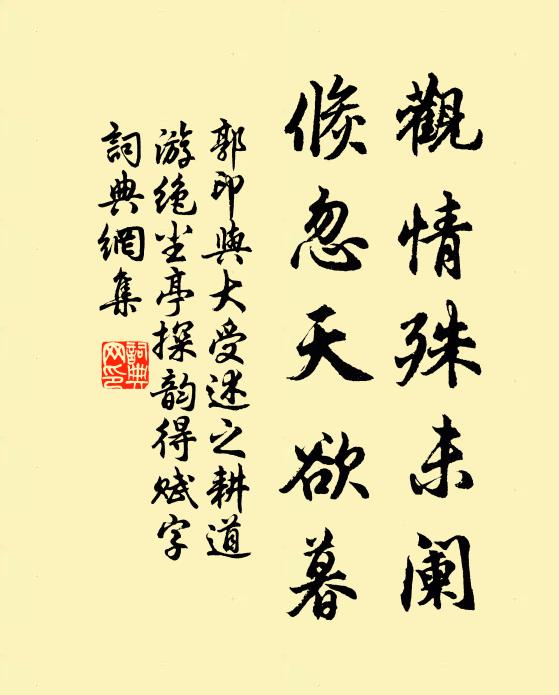 觀情殊未阑
倏忽天欲暮
郭印與大受述之耕道
游绝尘亭探韵得赋字
詞典網集
詞典网印